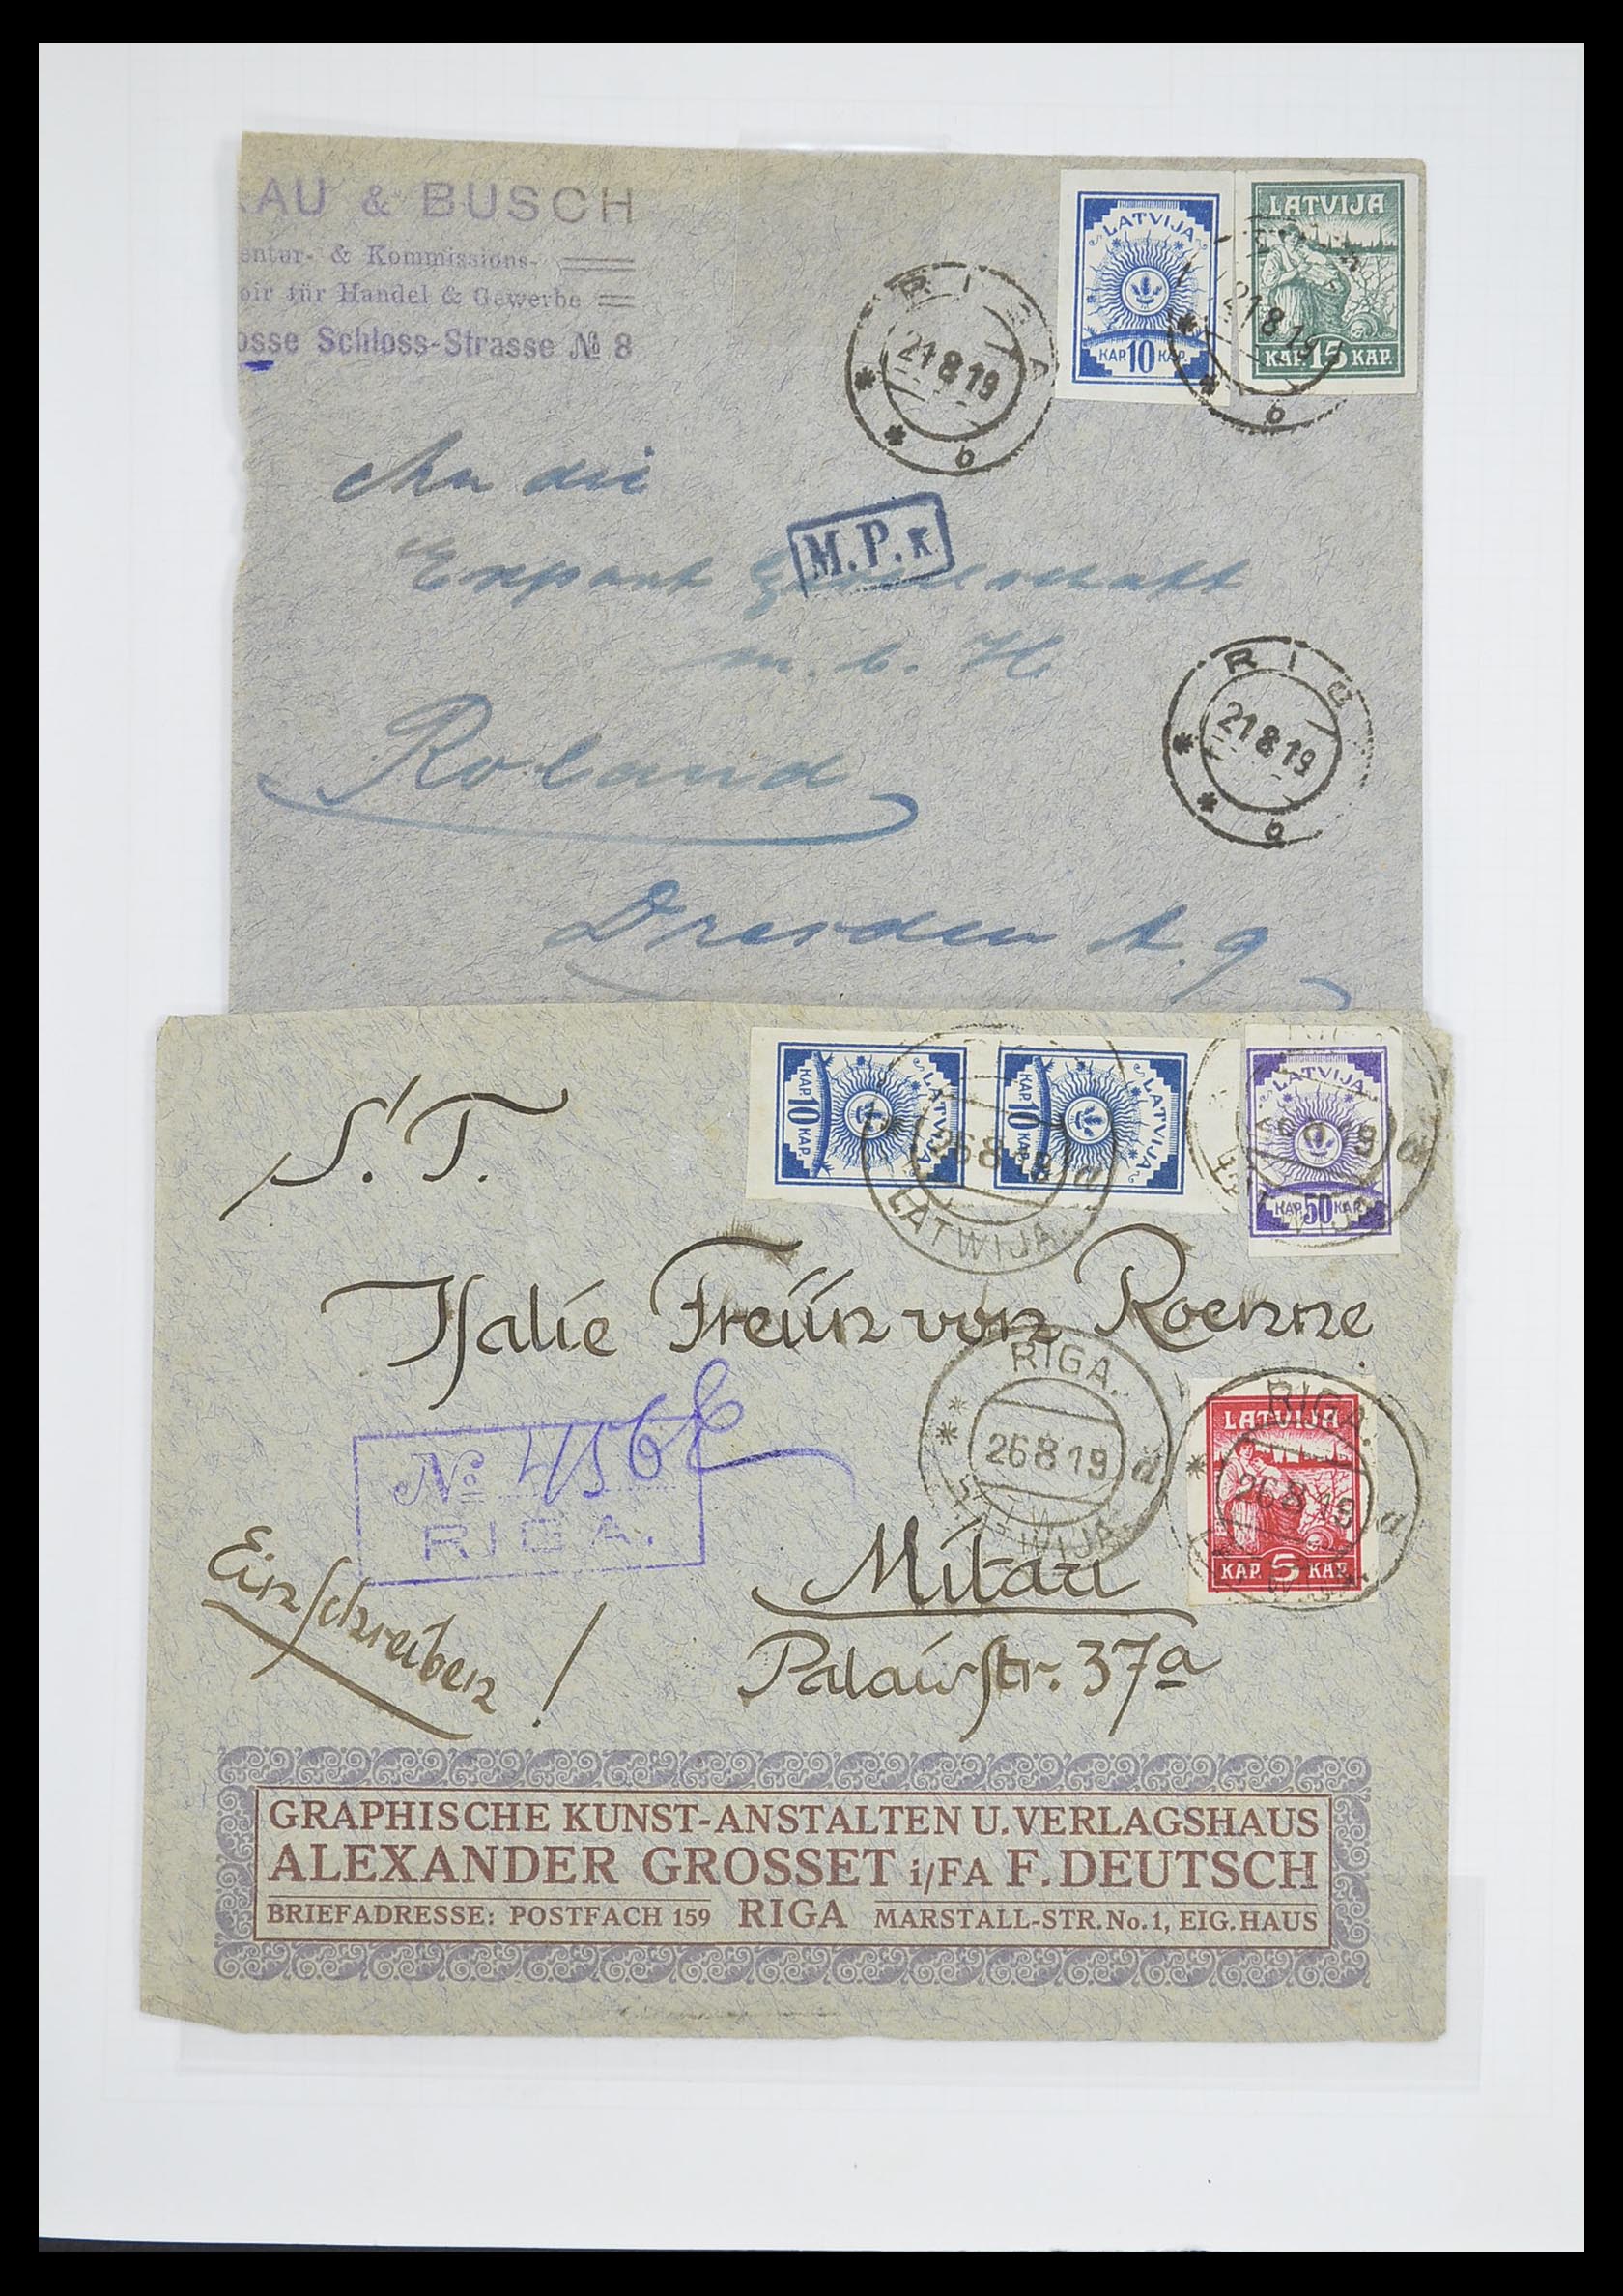 AU & BUSCH
entur- & Kommissions-
oir für Handel & Gewerbe
osse Schloss-Strasse № 8
LATVIJA
KAP. 10 KAP.
LATVIJA
KAP. 15 KAP.
RIGA
21 8 19
b
21 8 19
b
An die
Export Gesellschaft
M.P.K
m. b. H
Roland
RIG
21 8 19
b
Dresden A. 9
S. T.
LATVIJA
KAP. 10 KAP.
LATVIJA
KAP. 10 KAP.
26 8 19 d
LATWIJA.
LATVIJA
KAP. 50 KAP.
19 d
Isalie Freiin von Roenne
RIGA.
26 8 19 d
LATWIJA.
№ 4566
RIGA.
LATVIJA
KAP. 5 KAP.
RIGA.
26 8 19 d
Einschreiben!
Mitau
Palaisstr. 37a
GRAPHISCHE KUNST-ANSTALTEN U. VERLAGSHAUS
ALEXANDER GROSSET i/FA F. DEUTSCH
BRIEFADRESSE: POSTFACH 159 RIGA MARSTALL-STR. No. 1, EIG. HAUS